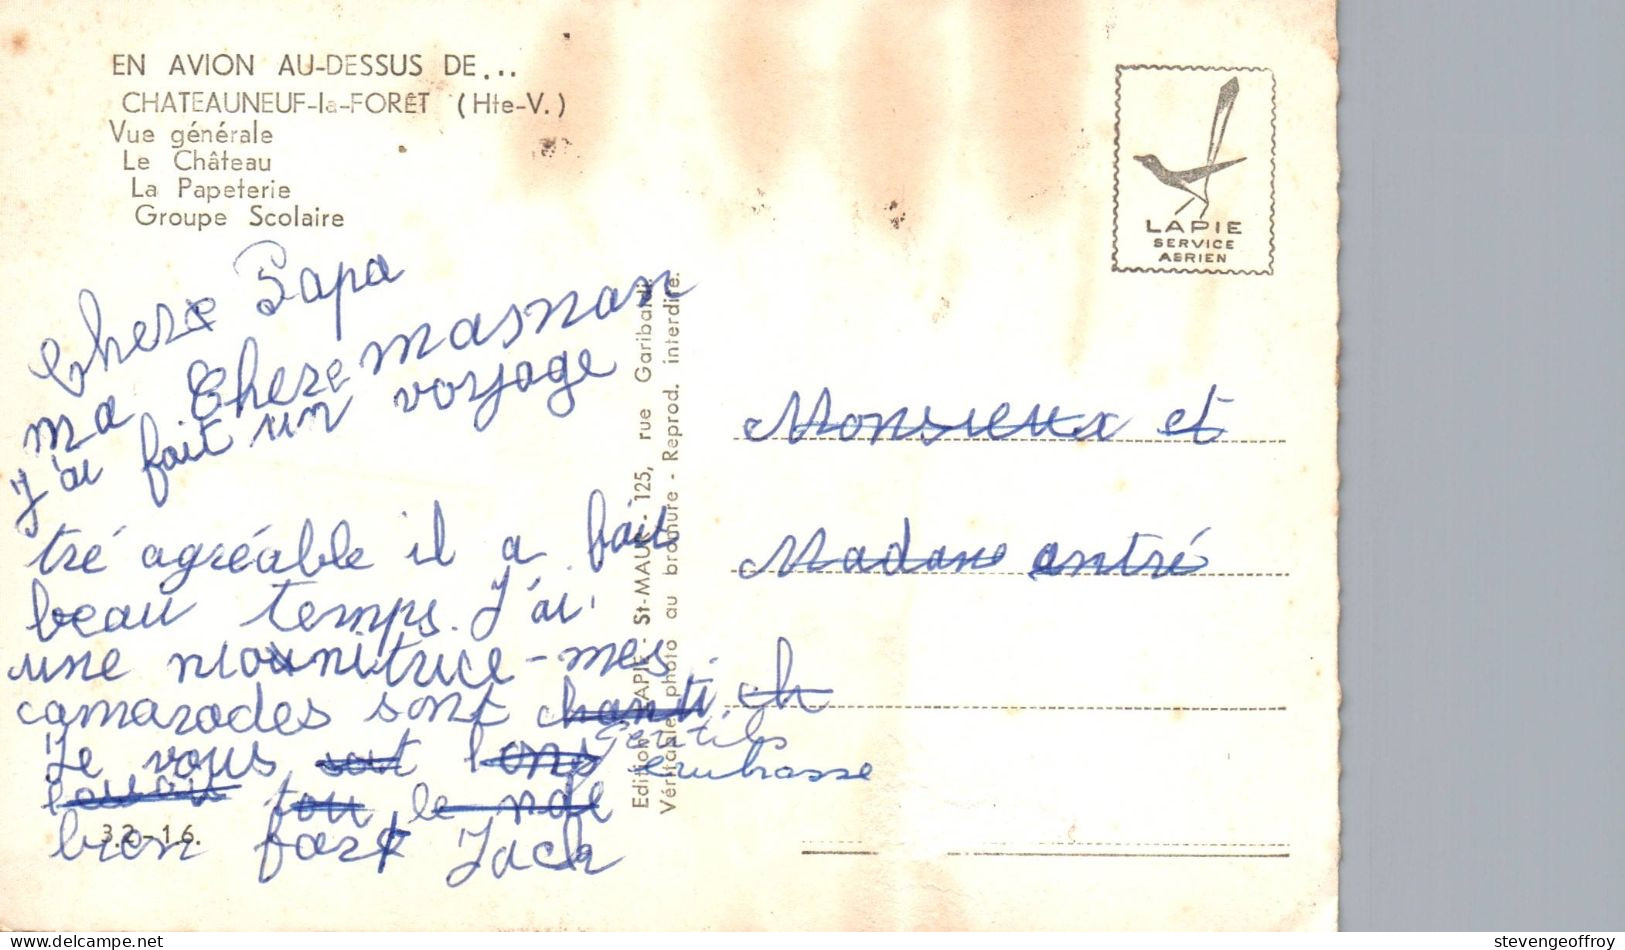 EN AVION AU-DESSUS DE...
CHATEAUNEUF-la-FORÊT (Hte-V.)
Vue générale
Le Château
La Papeterie
Groupe Scolaire
LAPIE
SERVICE
AERIEN
Cher Papa
ma Chere masnan
j'ai fait un voyage
tré agréable il a fait
beau temps. J'ai
une mounitrice - mes
camarades sont chanti ch
gentils
Je vous
embrasse
bien fort Jack
32-16.
Edition LAPIE - St-MAUR - 125, rue Garibaldi.
Véritable photo au bromure - Reprod. interdite.
Monsieux et
Madame antré
stevengeoffroy(Delcampe)